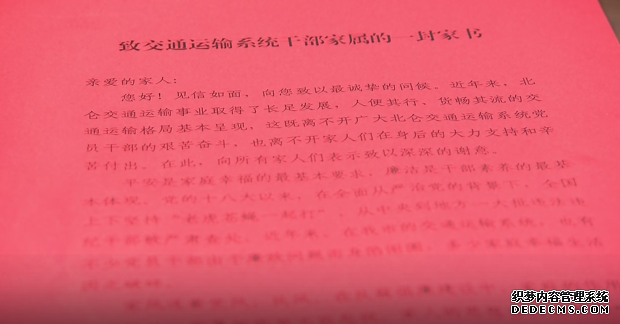 致交通运输系统干部家属的一封家书
亲爱的家人：
您好！见信如面，向您致以最诚挚的问候。近年来，北
仑交通运输事业取得了长足发展，人便其行、货畅其流的交
通运输格局基本呈现，这既离不开广大北仑交通运输系统党
员干部的艰苦奋斗，也离不开家人们在身后的大力支持和辛
苦付出。在此，向所有家人们表示致以深深的谢意。
平安是家庭幸福的最基本要求，廉洁是干部素养的最基
本体现。党的十八大以来，在全面从严治党的背景下，全国
上下坚持“老虎苍蝇一起打”，从中央到地方一大批违法违
纪干部被严肃查处。近年来，在我市的交通运输系统，也有
不少党员干部由于廉政问题而身陷囹圄，多少家庭幸福生活
因之破碎。
织梦内容管理系统
DEDECMS.COM